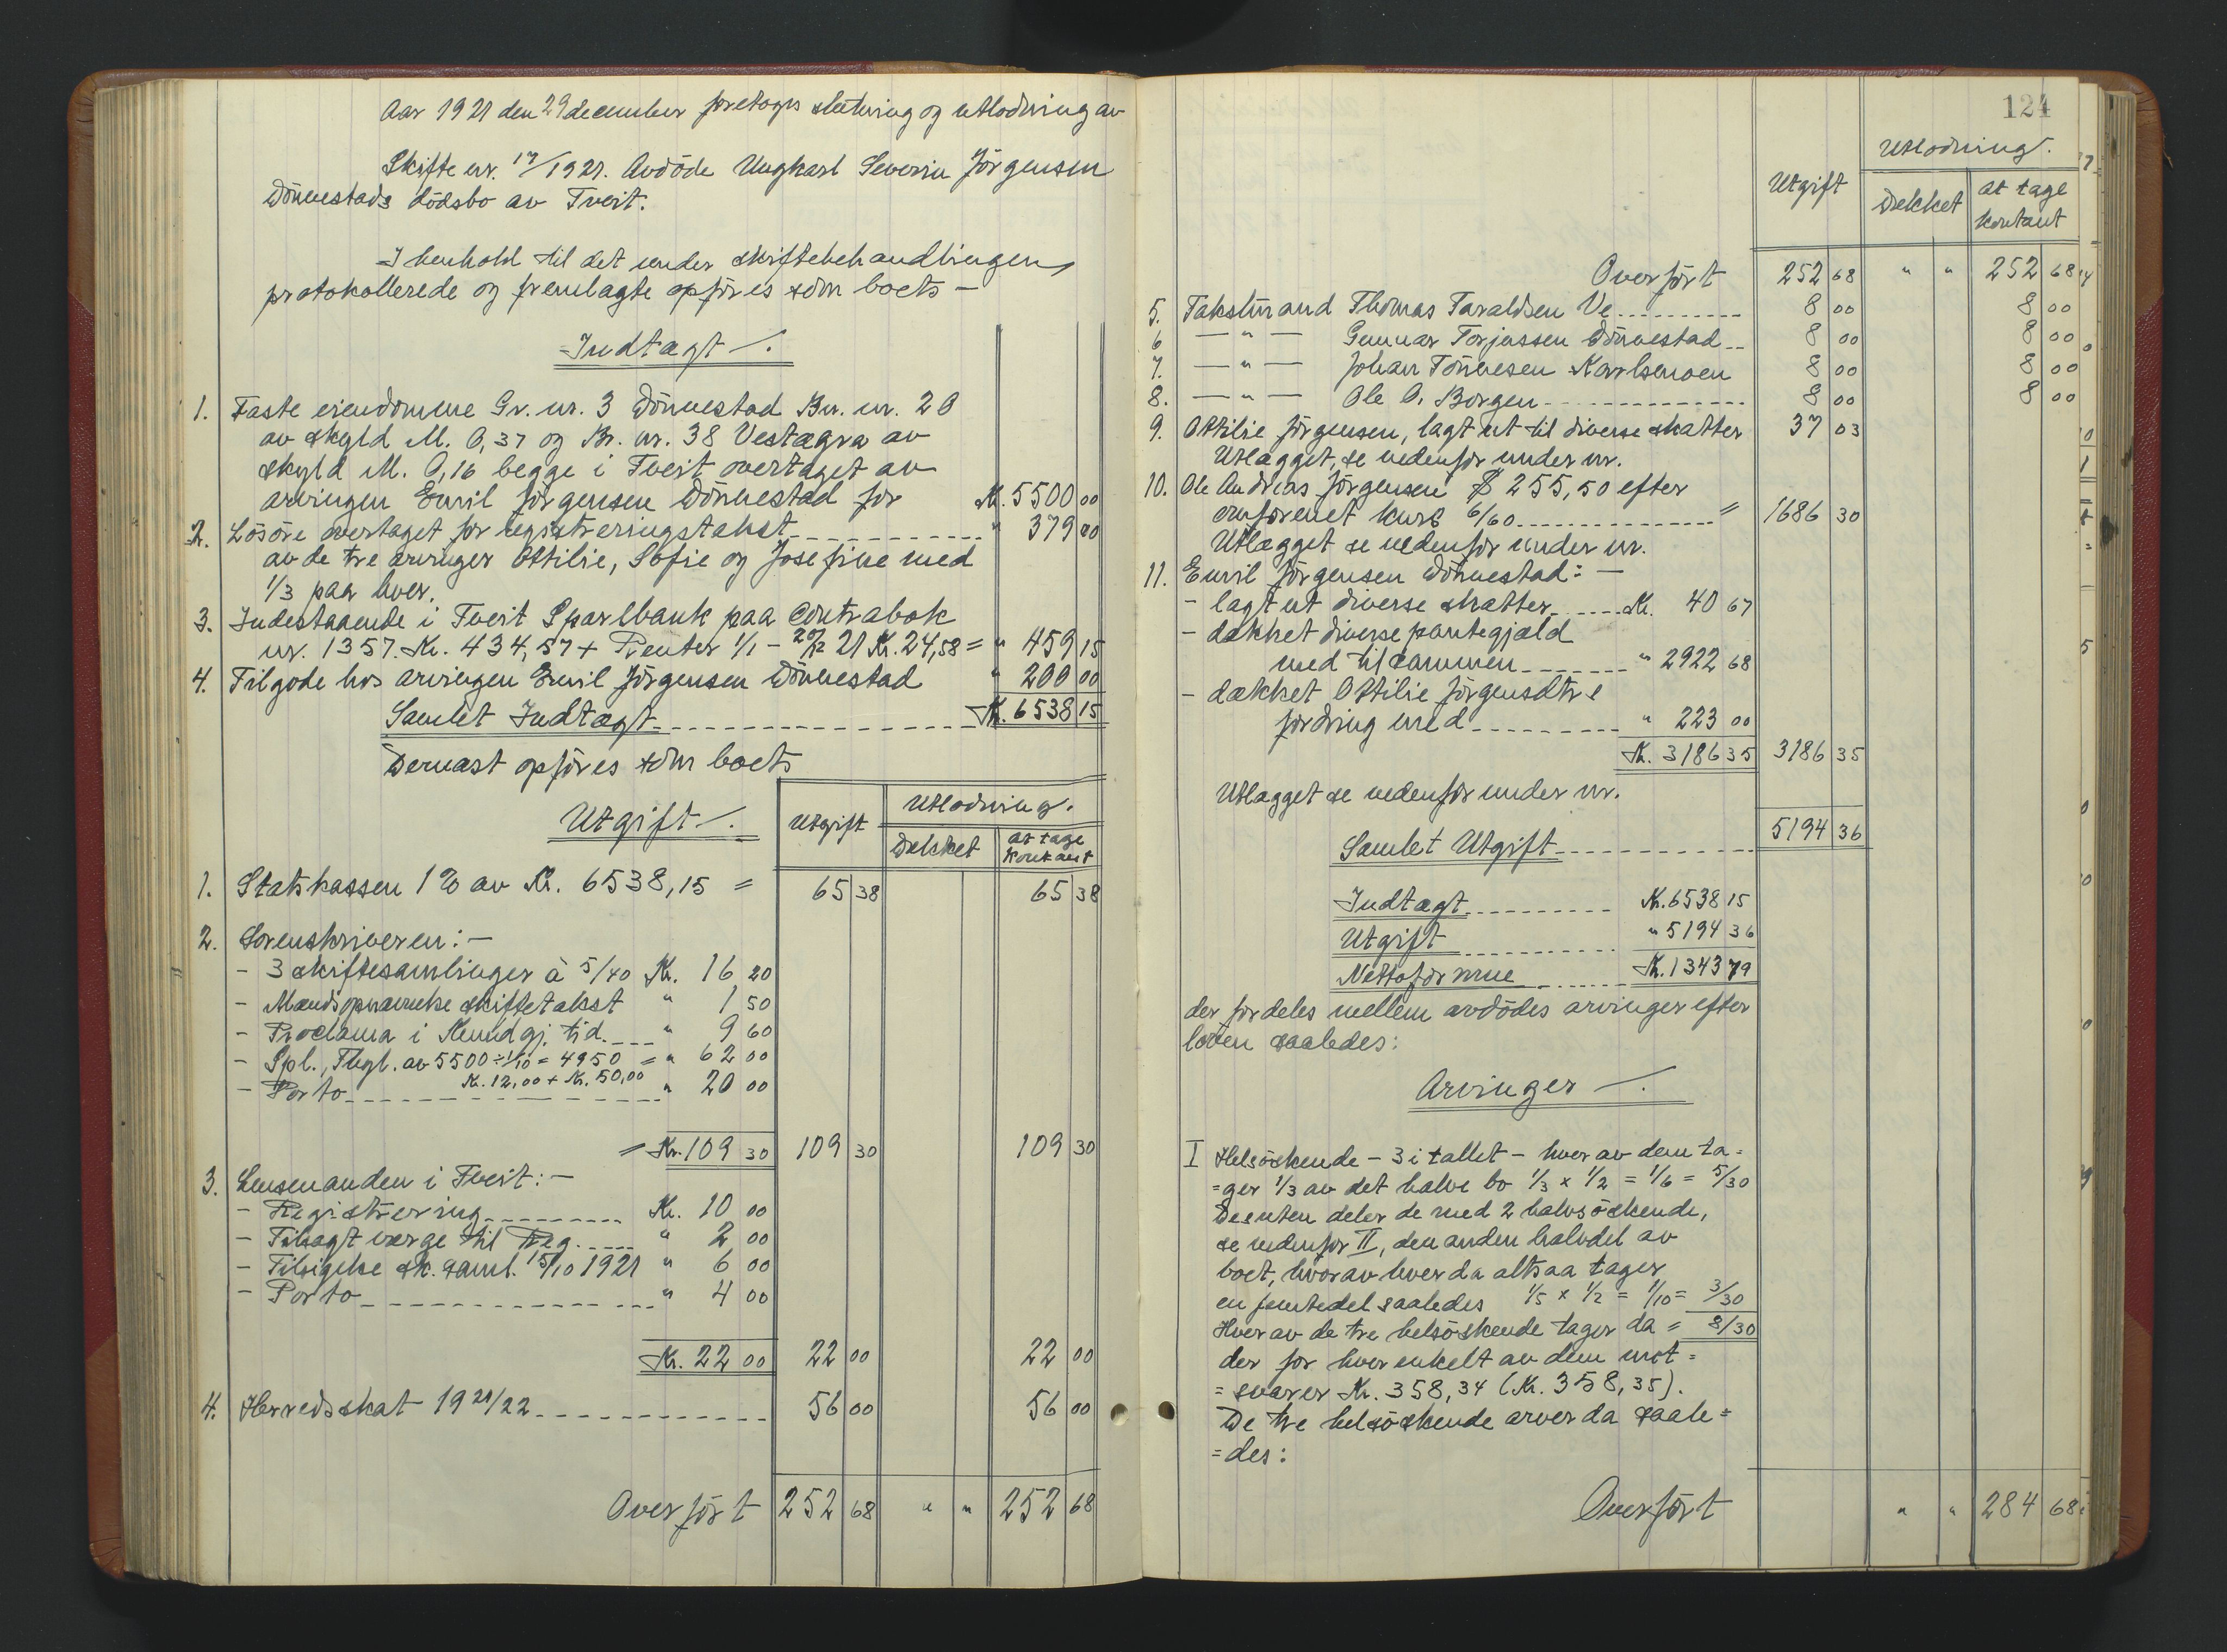 Aar 1921 den 29 december foretoges slutning og utlodning av
Skifte nr. 17/1921. Avdöde Ungkarl Severin Jörgensen
Dönnestads dödsbo av Tveit.
I henhold til det under skiftebehandlingen
protokollerede og fremlagte opföres som boets –
Indtægt /.
1. Faste eiendomme Gr. nr. 3 Dönnestad Br. nr. 20
av skyld M. 0,37 og Br. nr. 38 Vestægra av
skyld M. 0,16 begge i Tveit overtaget av
arvingen Emil Jörgensen Dönnestad for Kr. 5500 00
2. Lösöre overtaget for registreringstakst " 379 00
av de tre arvinger Ottilie, Sofie og Josefine med
1/3 paa hver.
3. Indestaaende i Tveit Sparebank paa Contrabok
nr. 1357. Kr. 434,57 + Renter 1/1 – 29/12 21 Kr. 24,58 = " 459 15
4. Tilgode hos arvingen Emil Jörgensen Dönnestad " 200 00
Samlet Indtægt Kr. 6538 15
Dernæst opföres som boets
Utgift /.
Utgift
Utlodning.
Dækket
At tage kontant
1. Statskassen 1% av Kr. 6538,15 = 65 38 65 38
2. Sorenskriveren: –
- 3 skiftesamlinger à 5/40 Kr. 16 20
- Mændsopnævnelse skiftetakst " 1 50
- Proclama i Kundgj. tid. " 9 60
- Spl., Thgl. av 5500 ÷ 1/10 = 4950 = " 62 00
Kr. 12,00 + Kr. 50,00
- Porto " 20 00
= Kr. 109 30 109 30 109 30
3. Lensmanden i Tveit: –
- Registrering Kr. 10 00
- Tilsagt værge til Reg. " 2 00
- Tilsigelse sk. saml. 15/10 1921 " 6 00
- Porto " 4 00
Kr. 22 00 22 00 22 00
4. Herredsskat 1921/22 56 00 56 00
Overfört 252 68 " " 252 68
124
Utgift
Utlodning.
Dækket
At tage
kontant
Overfört 252 68 " " 252 68
5. Takstmand Thomas Taraldsen Ve 8 00 8 00
6 — " — Gunnar Torjussen Dönnestad 8 00 8 00
7. — " — Johan Tönnesen Karlsmoen 8 00 8 00
8. — " — Ole O. Borgen 8 00 8 00
9. Ottilie Jörgensen, lagt ut til diverse skatter 37 03
Utlægget, se nedenfor under nr.
10. Ole Andreas Jörgensen $ 255,50 efter
omforenet kurs 6/60 = 1686 30
Utlægget se nedenfor under nr.
11. Emil Jörgensen Dönnestad: –
- lagt ut diverse skatter Kr. 40 67
- dækket diverse pantegjæld
med tilsammen " 2922 68
- dækket Ottilie Jörgensdtrs
fordring med " 223 00
Kr. 3186 35 3186 35
Utlægget se nedenfor under nr.
Samlet Utgift 5194 36
Indtægt Kr. 6538 15
Utgift " 5194 36
Nettoformue Kr. 1343 79
der fordeles mellem avdödes arvinger efter
loven saaledes:
Arvinger /.
I Helsöskende – 3 i tallet – hver av dem ta=
=ger 1/3 av det halve bo 1/3 x 1/2 = 1/6 = 5/30
Desuten deler de med 2 halvsöskende,
se nedenfor II, den anden halvdel av
boet, hvorav hver da altsaa tager
en femtedel saaledes 1/5 x 1/2 = 1/10 = 3/30
Hver av de tre helsöskende tager da = 8/30
der for hver enkelt av dem mot=
=svarer Kr. 358,34 (Kr. 358,35).
De tre helsöskende arver da saale=
=des:
Overfört " " 284 68